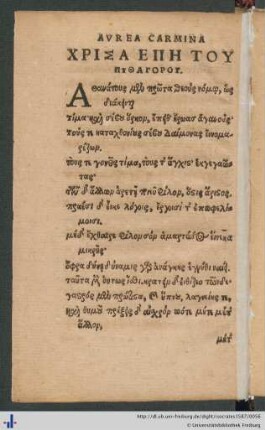 AVREA CARMINA
ΧΡΙΣΑ ΕΠΗ ΤΟΥ
ΠΥΘΑΓΟΡΟΥ.
Ἀθανάτους μὲν πρῶτα θεοὺς νόμῳ, ὡς
διάκειται
τίμα καὶ σέβου ὅρκον, ἔπειθ' ἥρωας ἀγαυούς
τούς τε καταχθονίους σέβου δαίμονας ἔννομα
ῥέζων.
τούς τε γονεῖς τίμα, τούς τ' ἄγχις' ἐκγεγαῶ
τας
τῶν δ' ἄλλων ἀρετῇ ποιοῦ φίλον, ὅςις ἄριςος.
πραέσι δ' εἶκε λόγοις, ἔργοισί τ' ἐπωφελί
μοισι.
μηδ' ἔχθαιρε φίλον σὸν ἁμαρτάδος εἵνεκα
μικρῆς
ὄφρα δύνῃ δύναμις γὰρ ἀνάγκης ἐγγύθι ναίει.
ταῦτα μὲν οὕτως ἴσθι, κρατεῖν δ' εἰθίζεο τῶνδε
γαςρὸς μὲν πρώτιςα, καὶ ὕπνου, λαγνείης τε,
καὶ θυμοῦ πρήξεις δ' αἰσχρόν ποτε μήτε μετ'
ἄλλου,
μήτ'
http://dl.ub.uni-freiburg.de/diglit/isocrates1587/0056
© Universitätsbibliothek Freiburg